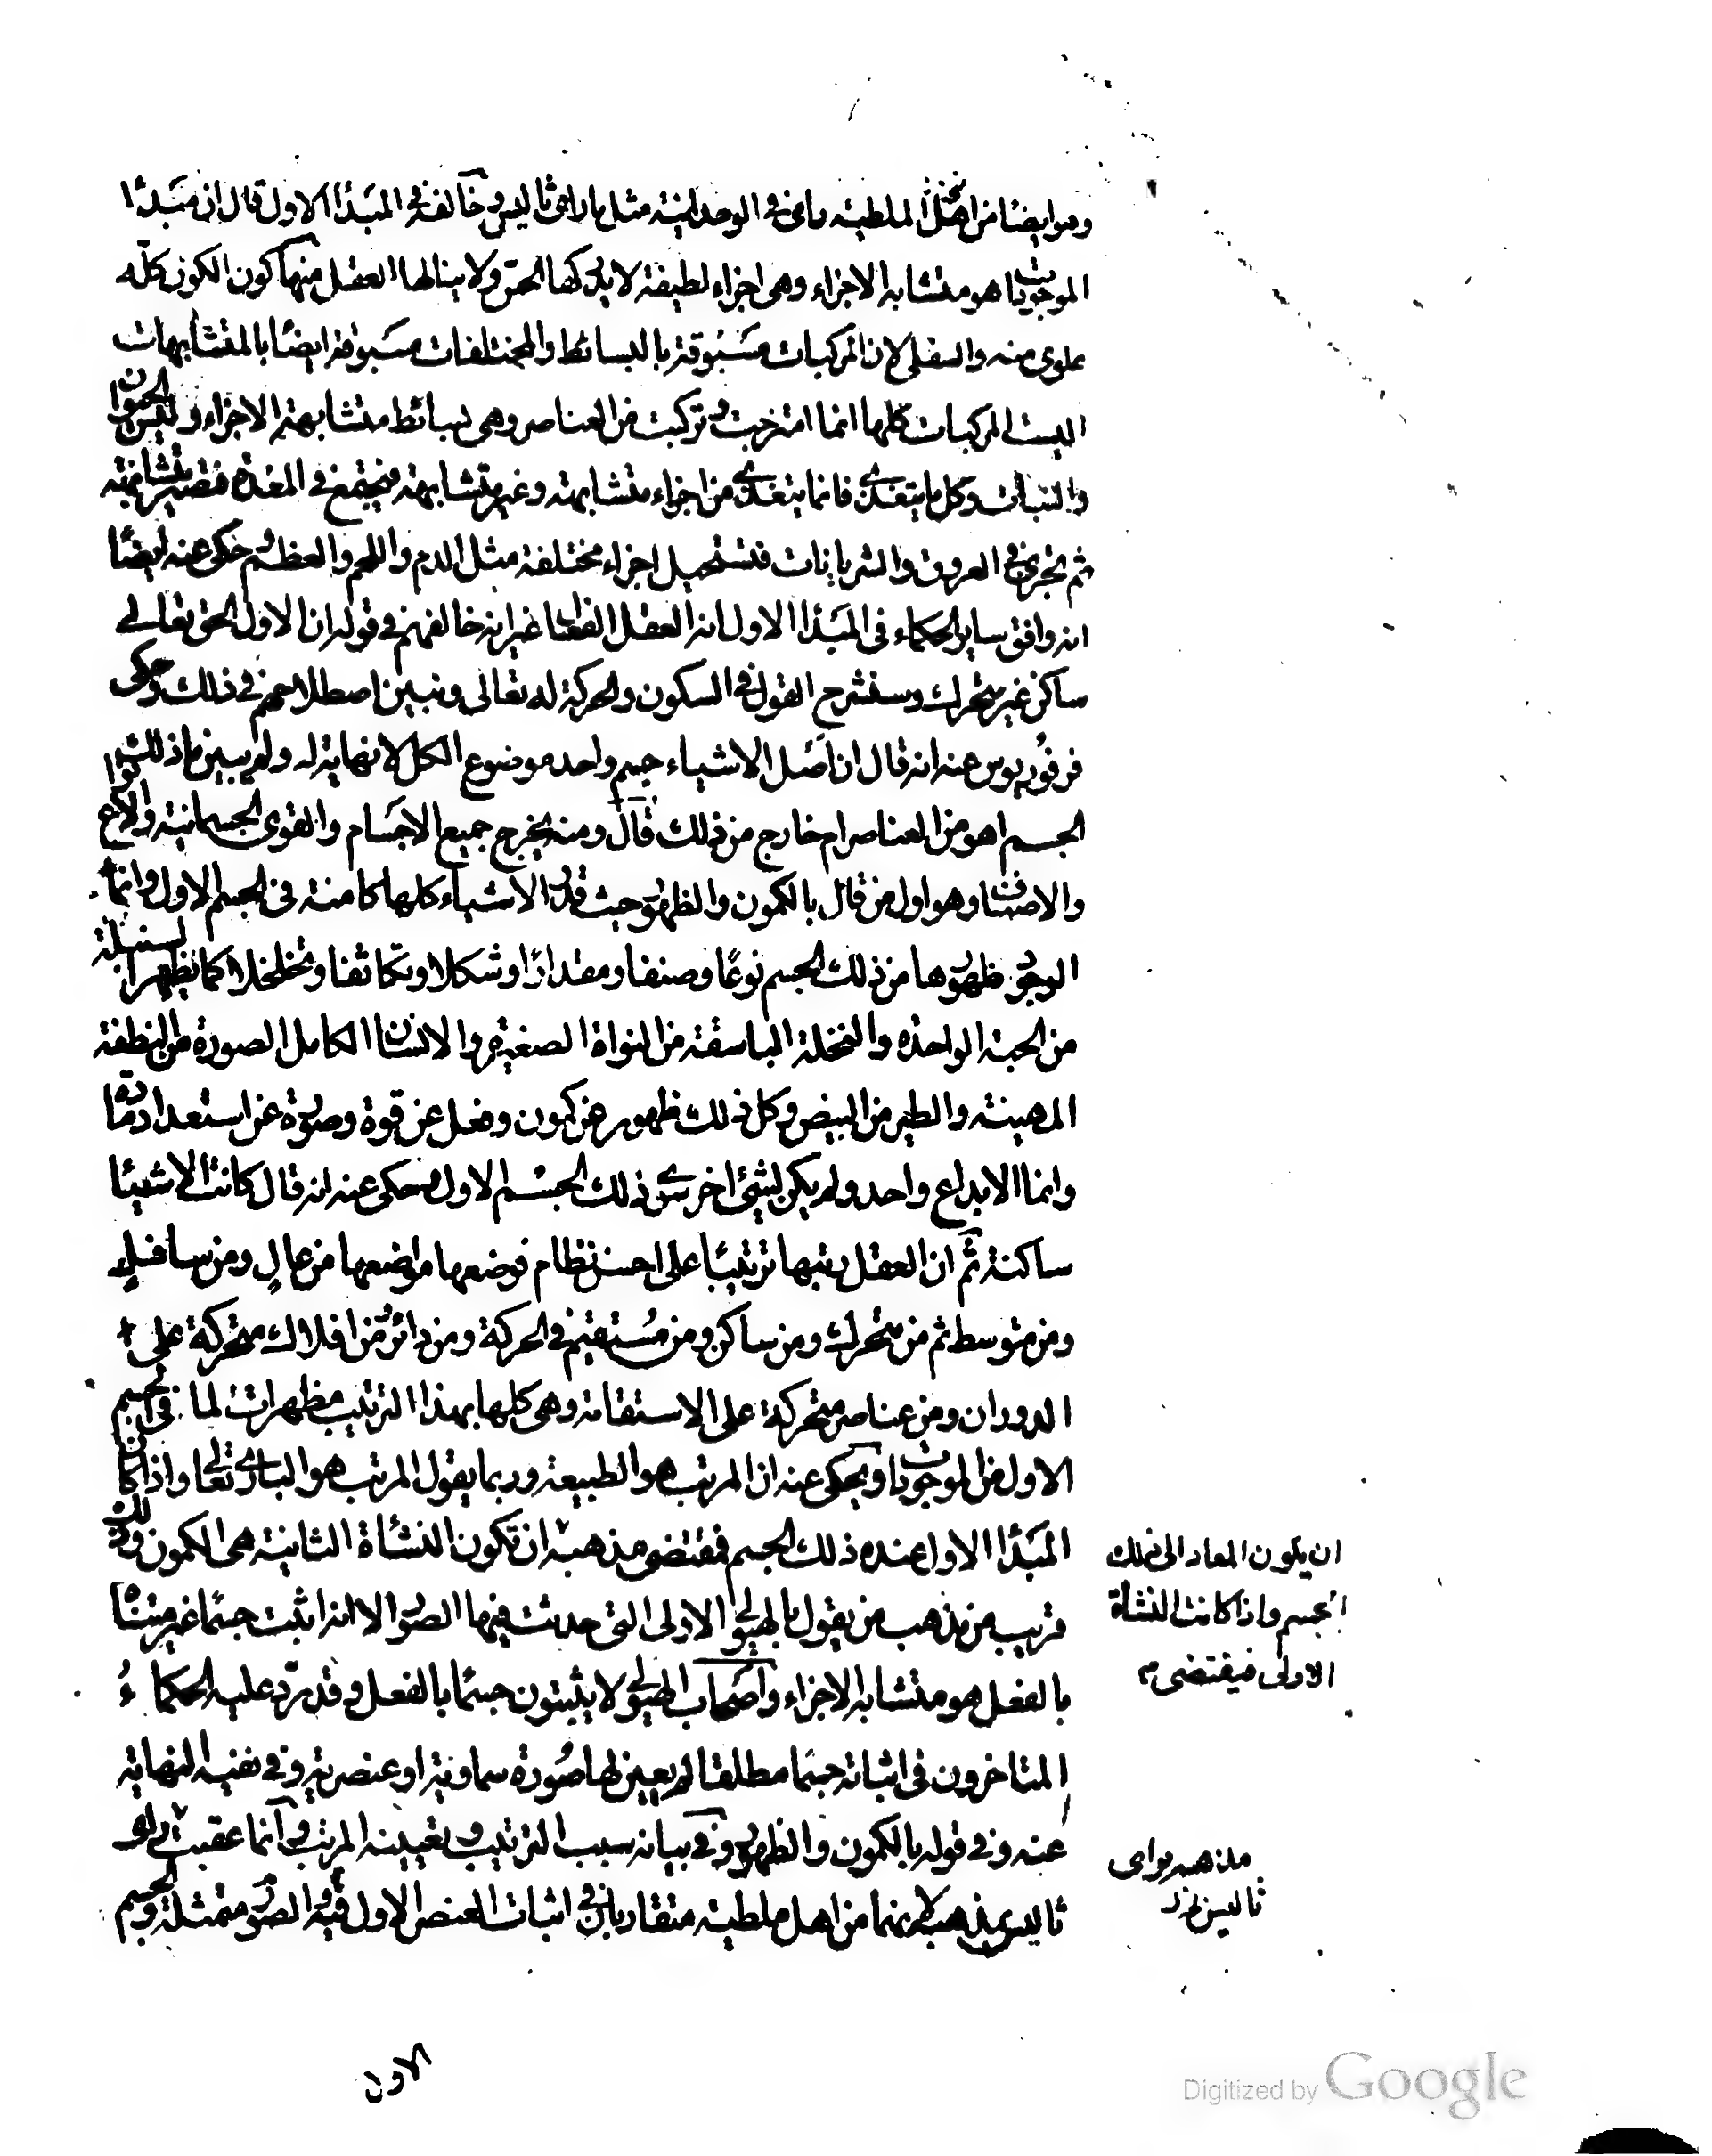 وهو ايضا من اهل الملطية راى فى الوحدانية مثل ما راى ثاليس وخالفه فى المبدأ الاول قال ان مبدأ
الموجودات هو متشابه الاجزاء وهى اجزاء لطيفة لا يدركها الحس ولا ينالها العقل منها كون الكون كله
علوى منه والسفلى لان المركبات مسبوقة بالبسائط والمختلفات مسبوقة ايضا بالمتشابهات
اليست المركبات كلها انما امتزجت وتركبت من العناصر وهى بسائط متشابهة الاجزاء وليس الحيوان
والنبات وكل ما يتغذى فانما يتغذى من اجزاء متشابهة وغير متشابهة فيجتمع فى المعدة فتصير متشابهة
ثم تجرى فى العروق والشريانات فتستحيل اجزاء مختلفة مثل الدم واللحم والعظم وحكى عنه ايضا
انه وافق ساير الحكماء فى المبدأ الاول انه العقل الفعال غير انه خالفهم فى قوله ان الاول الحق تعالى
ساكن غير متحرك وسنشرح القول فى السكون والحركة له تعالى ونبين اصطلاحهم فى ذلك وحكى
فرفوريوس عنه انه قال ان اصل الاشياء جسم واحد موضوع الكل لا نهاية له ولم يبين ما ذلك
الجسم اهو من العناصر ام خارج من ذلك قال ومنه يخرج جميع الاجسام والقوى الجسمانية والانواع
والاصناف وهو اول من قال بالكمون والظهور حيث قدر الاشياء كلها كامنة فى الجسم الاول وانما
الوجود ظهورها من ذلك الجسم نوعا وصنفا ومقدارا وشكلا وتكاثفا وتخلخلا كما يظهر السنبلة
من الحبة الواحدة والنخلة الباسقة من النواة الصغيرة والانسان الكامل الصورة من النطفة
المهينة والطير من البيض وكل ذلك ظهور عن كمون وفعل عن قوة وصورة عن استعداد مادة
وانما الابداع واحد ولم يكن لشئ اخر سوى ذلك الجسم الاول وحكى عنه انه قال كانت الاشياء
ساكنة ثم ان العقل رتبها ترتيبا على احسن نظام فوضعها مواضعها من عال ومن سافل
ومن متوسط ثم من متحرك ومن ساكن ومن مستقيم فى الحركة ومن دائر ومن افلاك متحركة على
الدوران ومن عناصر متحركة على الاستقامة وهى كلها بهذا الترتيب مظهرات لما فى الجسم
الاول من الموجودات ويحكى عنه ان المرتب هو الطبيعة وربما يقول المرتب هو البارى تعالى واذا كان
المبدأ الاول عنده ذلك الجسم فمقتضى مذهبه ان تكون النشأة الثانية هى الكمون وذلك
ان يكون المعاد الى ذلك
الجسم واذا كانت النشأة
الاولى فيقتضى
قريب من مذهب من يقول بالهيولى الاولى التى حدثت فيها الصور الا انه اثبت جسما غير متناه
بالفعل هو متشابه الاجزاء واصحاب الهيولى لا يثبتون جسما بالفعل وقد رد عليه الحكماء
المتاخرون فى اثباته جسما مطلقا لم يعين لها صورة سماوية او عنصرية وفى نفيه النهاية
عنه وفى قوله بالكمون والظهور وفى بيانه سبب الترتيب وتعيينه المرتب وانما عقبت
مذهبه براى
ثاليس
ثاليس لانهما من اهل ملطية متقاربان فى اثبات العنصر الاول والصور فيه متمثلة والجسم
الاول
Digitized by Google